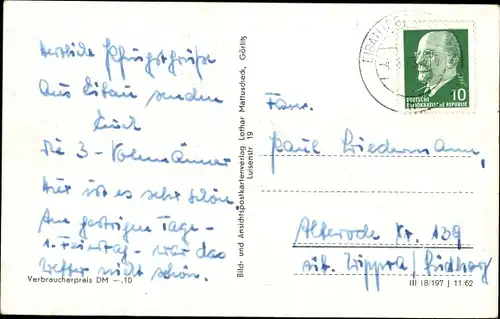 Herzliche Pfingstgrüße
Aus Eibau senden
Euch
Die 3 - Volmänner
Hier ist es sehr schön
Am gestrigen Tage -
1. Feiertag - war das
Wetter nicht schön.
Verbraucherpreis DM -.10
Bild- und Ansichtspostkartenverlag Lothar Mattuscheck, Görlitz
Luisenstr. 19
EIBAU
DEUTSCHE
DEMOKRATISCHE REPUBLIK
10
Fam.
Paul Biedermann,
Alterode Nr. 139
Südharz
III 18/197 J 11 62